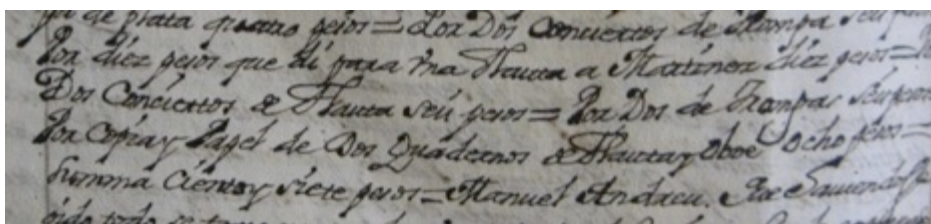 de plata quatro pesos = Por Dos Conciertos de Trompa seis
Por diez pesos que di para una Flauta a Martinez diez pesos =
Dos Conciertos de Flauta seis pesos = Por Dos de Trompas seis pesos
Por Copia y Papel de Dos Quadernos de Flauta y Oboe Ocho pesos =
Summa Ciento y siete pesos = Manuel Andreu.
todo